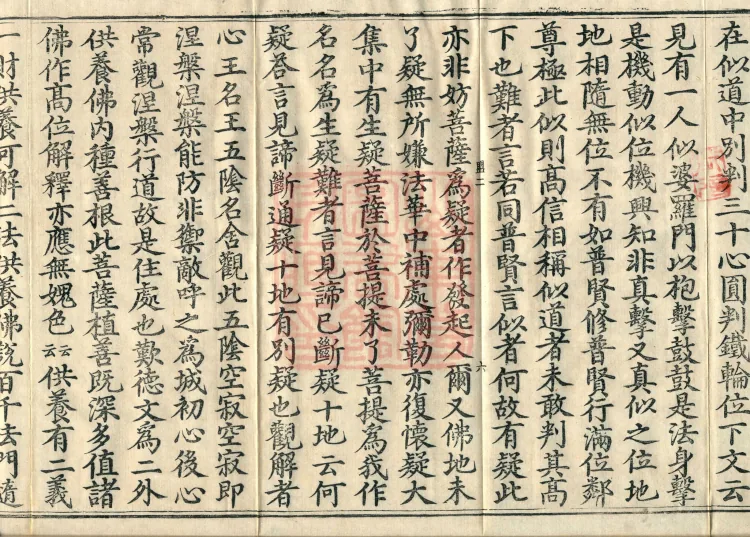 在似道中別判三十心圓判鐵輪位下文云
見有一人似婆羅門以枹擊鼓鼓是法身擊
是機動似位機興知非真擊又真似之位地
地相隨無位不有如普賢修普賢行滿位鄰
尊極此似則高信相稱似道者未敢判其高
下也難者言若同普賢言似者何故有疑此
亦非妨菩薩為疑者作發起人爾又佛地未
了疑無所嫌法華中補處彌勒亦復懷疑大
集中有生疑菩薩於菩提未了菩提為我作
名名為生疑難者言見諦已斷疑十地云何
疑荅言見諦斷通疑十地有別疑也觀解者
心王名王五陰名舍觀此五陰空寂空寂即
涅槃涅槃能防非禦敵呼之為城初心後心
常觀涅槃行道故是住處也歎德文為二外
供養佛內種善根此菩薩植善既深多值諸
佛作高位解釋亦應無媿色云云供養有二義
一財供養可解二法供養佛說百千法門隨
六